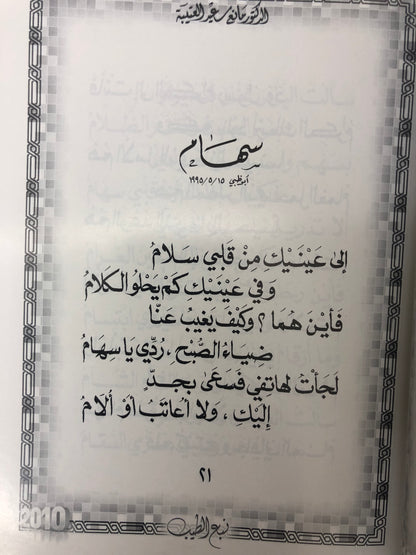 الدكتور مانع سعيد العتيبة
سهام
أبوظبي ١٩٩٥/٥/١٥
إلى عَيْنَيْكِ مِنْ قَلبي سَلامُ
وَفي عَينَيكِ كَمْ يَحْلُو الكَلامُ
فَأينَ هُمَا ؟ وَكَيْفَ يَغيبُ عَنّا
ضِيَاءُ الصُّبْحِ ، رُدِّي يَا سِهَامُ
لَجَأتُ لهَاتِفي فَسَعَى بجدٍّ
إليْكِ ، وَلا أعَاتَبُ أوْ ألامُ
٢١
نبع الطيب
2010